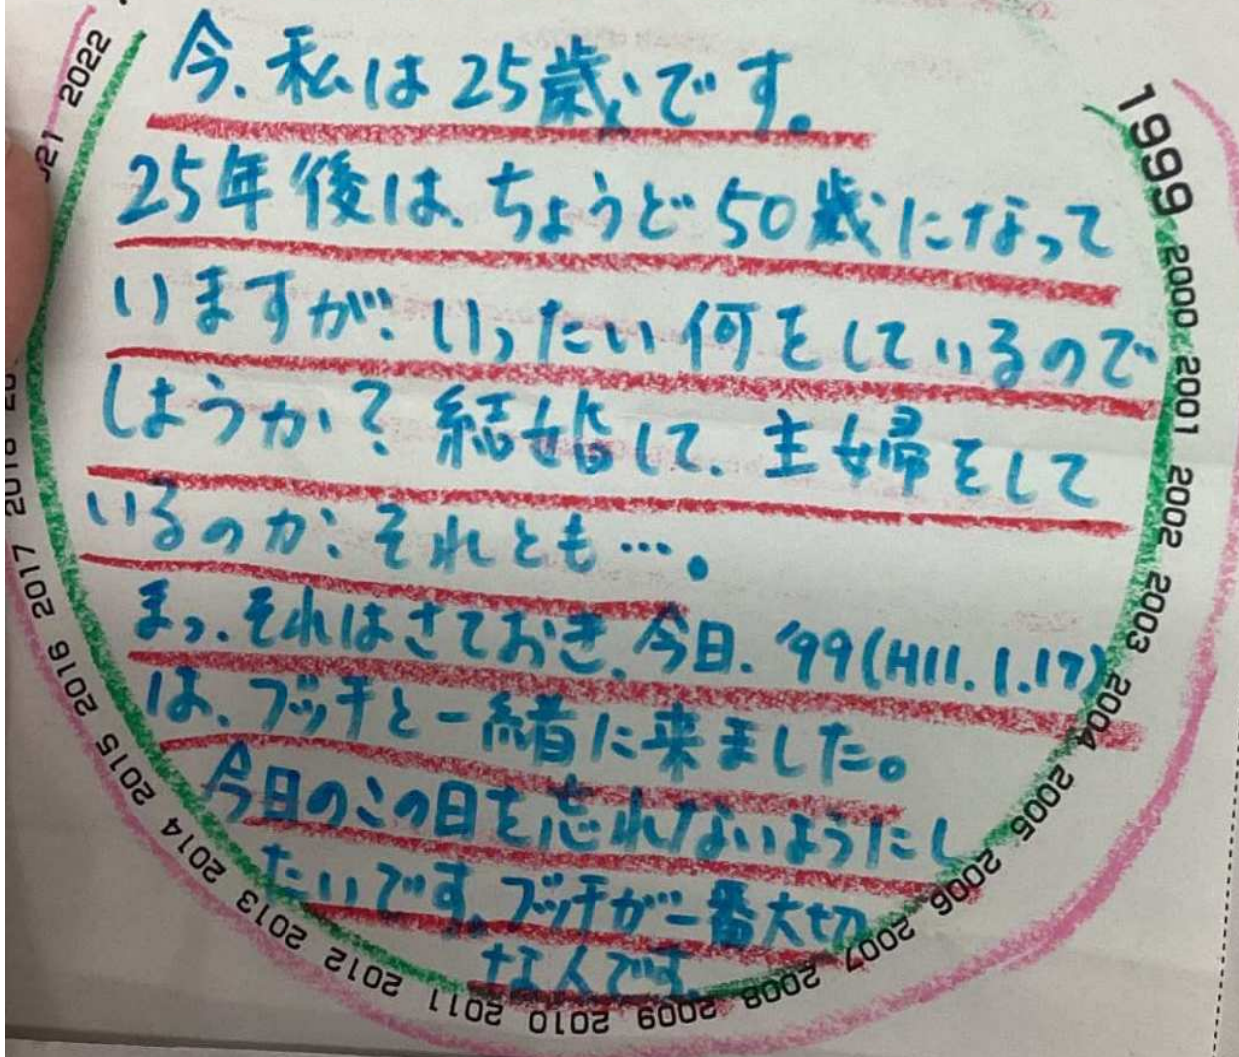 今、私は25歳、です。
25年後は、ちょうど50歳になって
いますが、いったい何をしているので
しょうか？結婚して、主婦をして
いるのか、それとも…。
まっ、それはさておき、今日、'99(H11.1.17)
は、ブッチと一緒に来ました。
今日のこの日を忘れないようにし
たいです。ブッチが一番大切
な人です。
1999 2000 2001 2002 2003 2004 2005 2006 2007 2008 2009 2010 2011 2012 2013 2014 2015 2016 2017 2018
2022